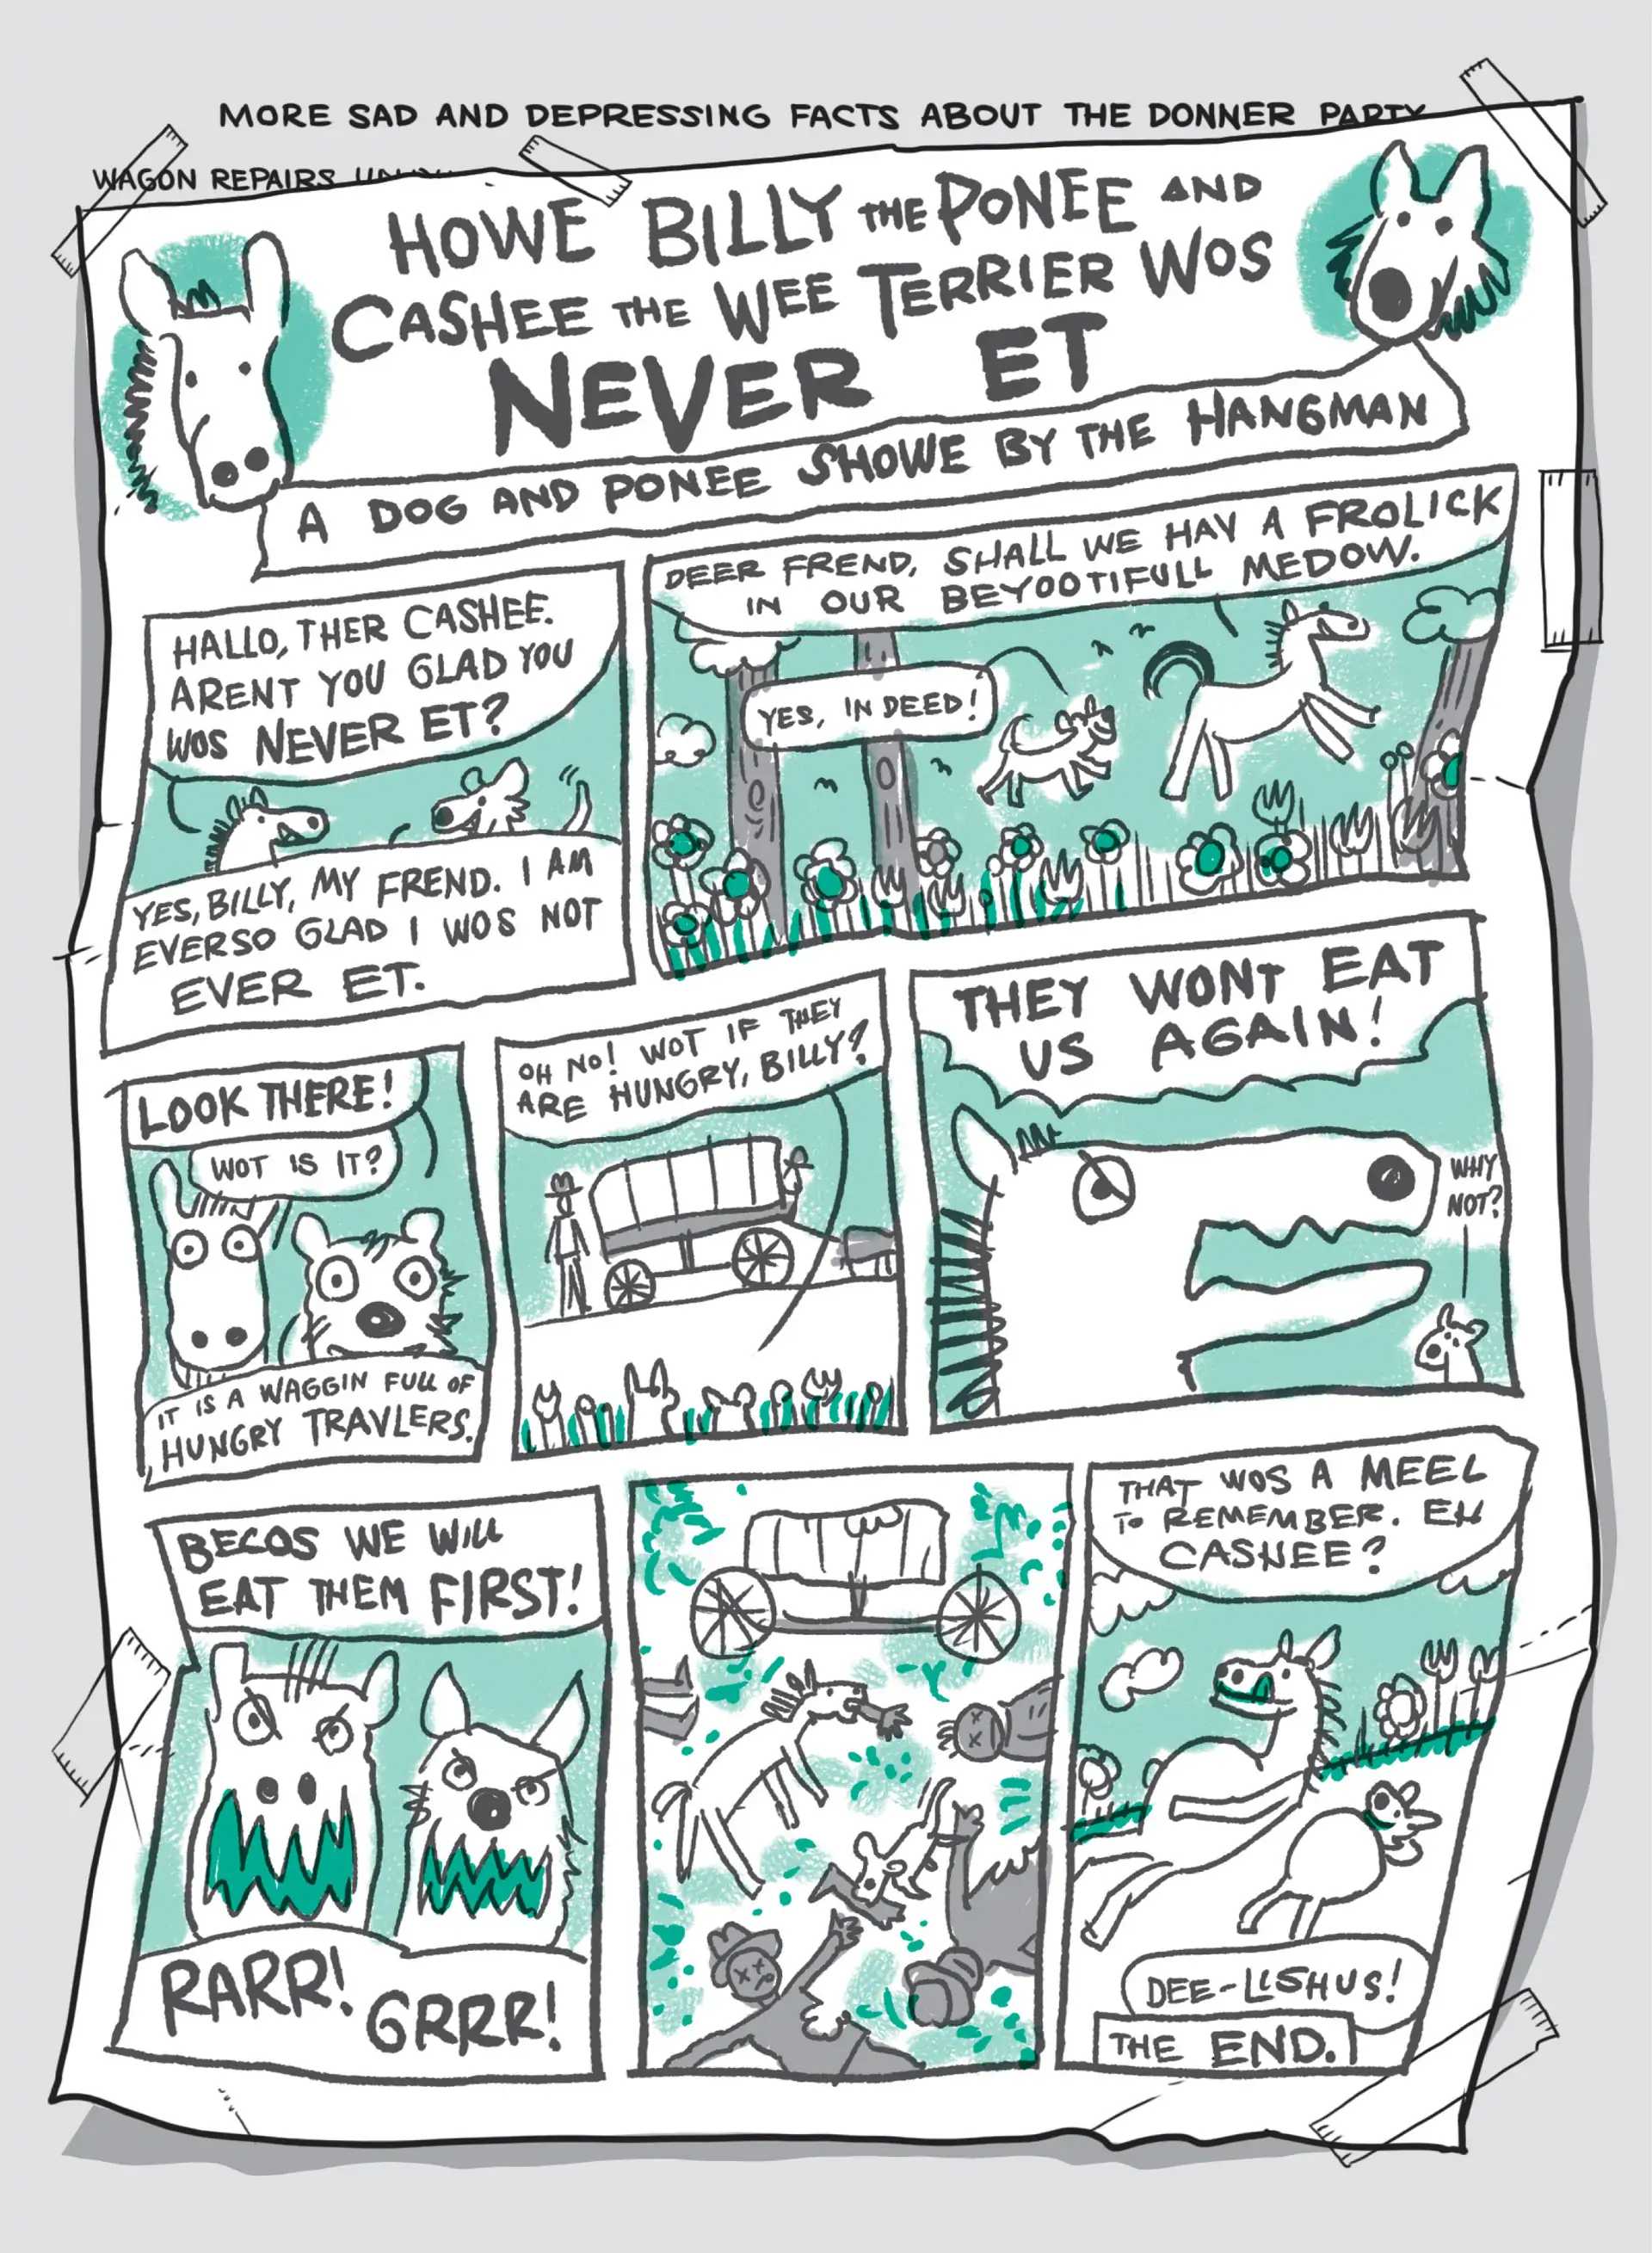 MORE SAD AND DEPRESSING FACTS ABOUT THE DONNER PARTY
WAGON REPAIRS
HOWE BILLY THE PONEE AND
CASHEE THE WEE TERRIER WOS
NEVER ET
A DOG AND PONEE SHOWE BY THE HANGMAN
HALLO, THER CASHEE.
ARENT YOU GLAD YOU
WOS NEVER ET?
YES, BILLY, MY FREND. I AM
EVERSO GLAD I WOS NOT
EVER ET.
DEER FREND, SHALL WE HAV A FROLICK
IN OUR BEYOOTIFULL MEDOW.
YES, IN DEED!
LOOK THERE!
WOT IS IT?
IT IS A WAGGIN FULL OF
HUNGRY TRAVLERS.
OH NO! WOT IF THEY
ARE HUNGRY, BILLY?
THEY WONT EAT
US AGAIN!
WHY
NOT?
BECOS WE WILL
EAT THEM FIRST!
RARR!
GRRR!
THAT WOS A MEEL
TO REMEMBER. EH
CASHEE?
DEE-LISHUS!
THE END.